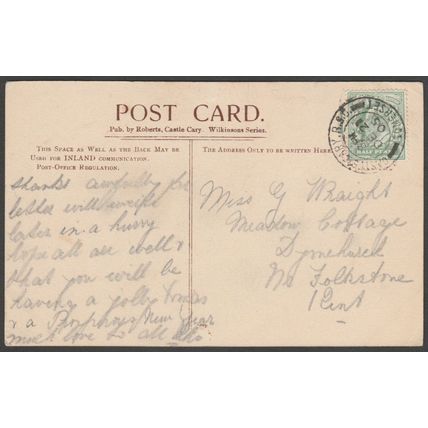 POST CARD.
Pub. by Roberts, Castle Cary. Wilkinsons Series.
THIS SPACE AS WELL AS THE BACK MAY BE
USED FOR INLAND COMMUNICATION.
POST-OFFICE REGULATION.
THE ADDRESS ONLY TO BE WRITTEN HERE
thanks awfully for
letter will write
later in a hurry
hope all are well &
that you will be
having a jolly Xmas
& a Prosperous New Year
much love to all
Miss G Wraight
Meadow Cottage
Dymchurch
Nr Folkstone
Kent
SOMERSET
HALF PENNY